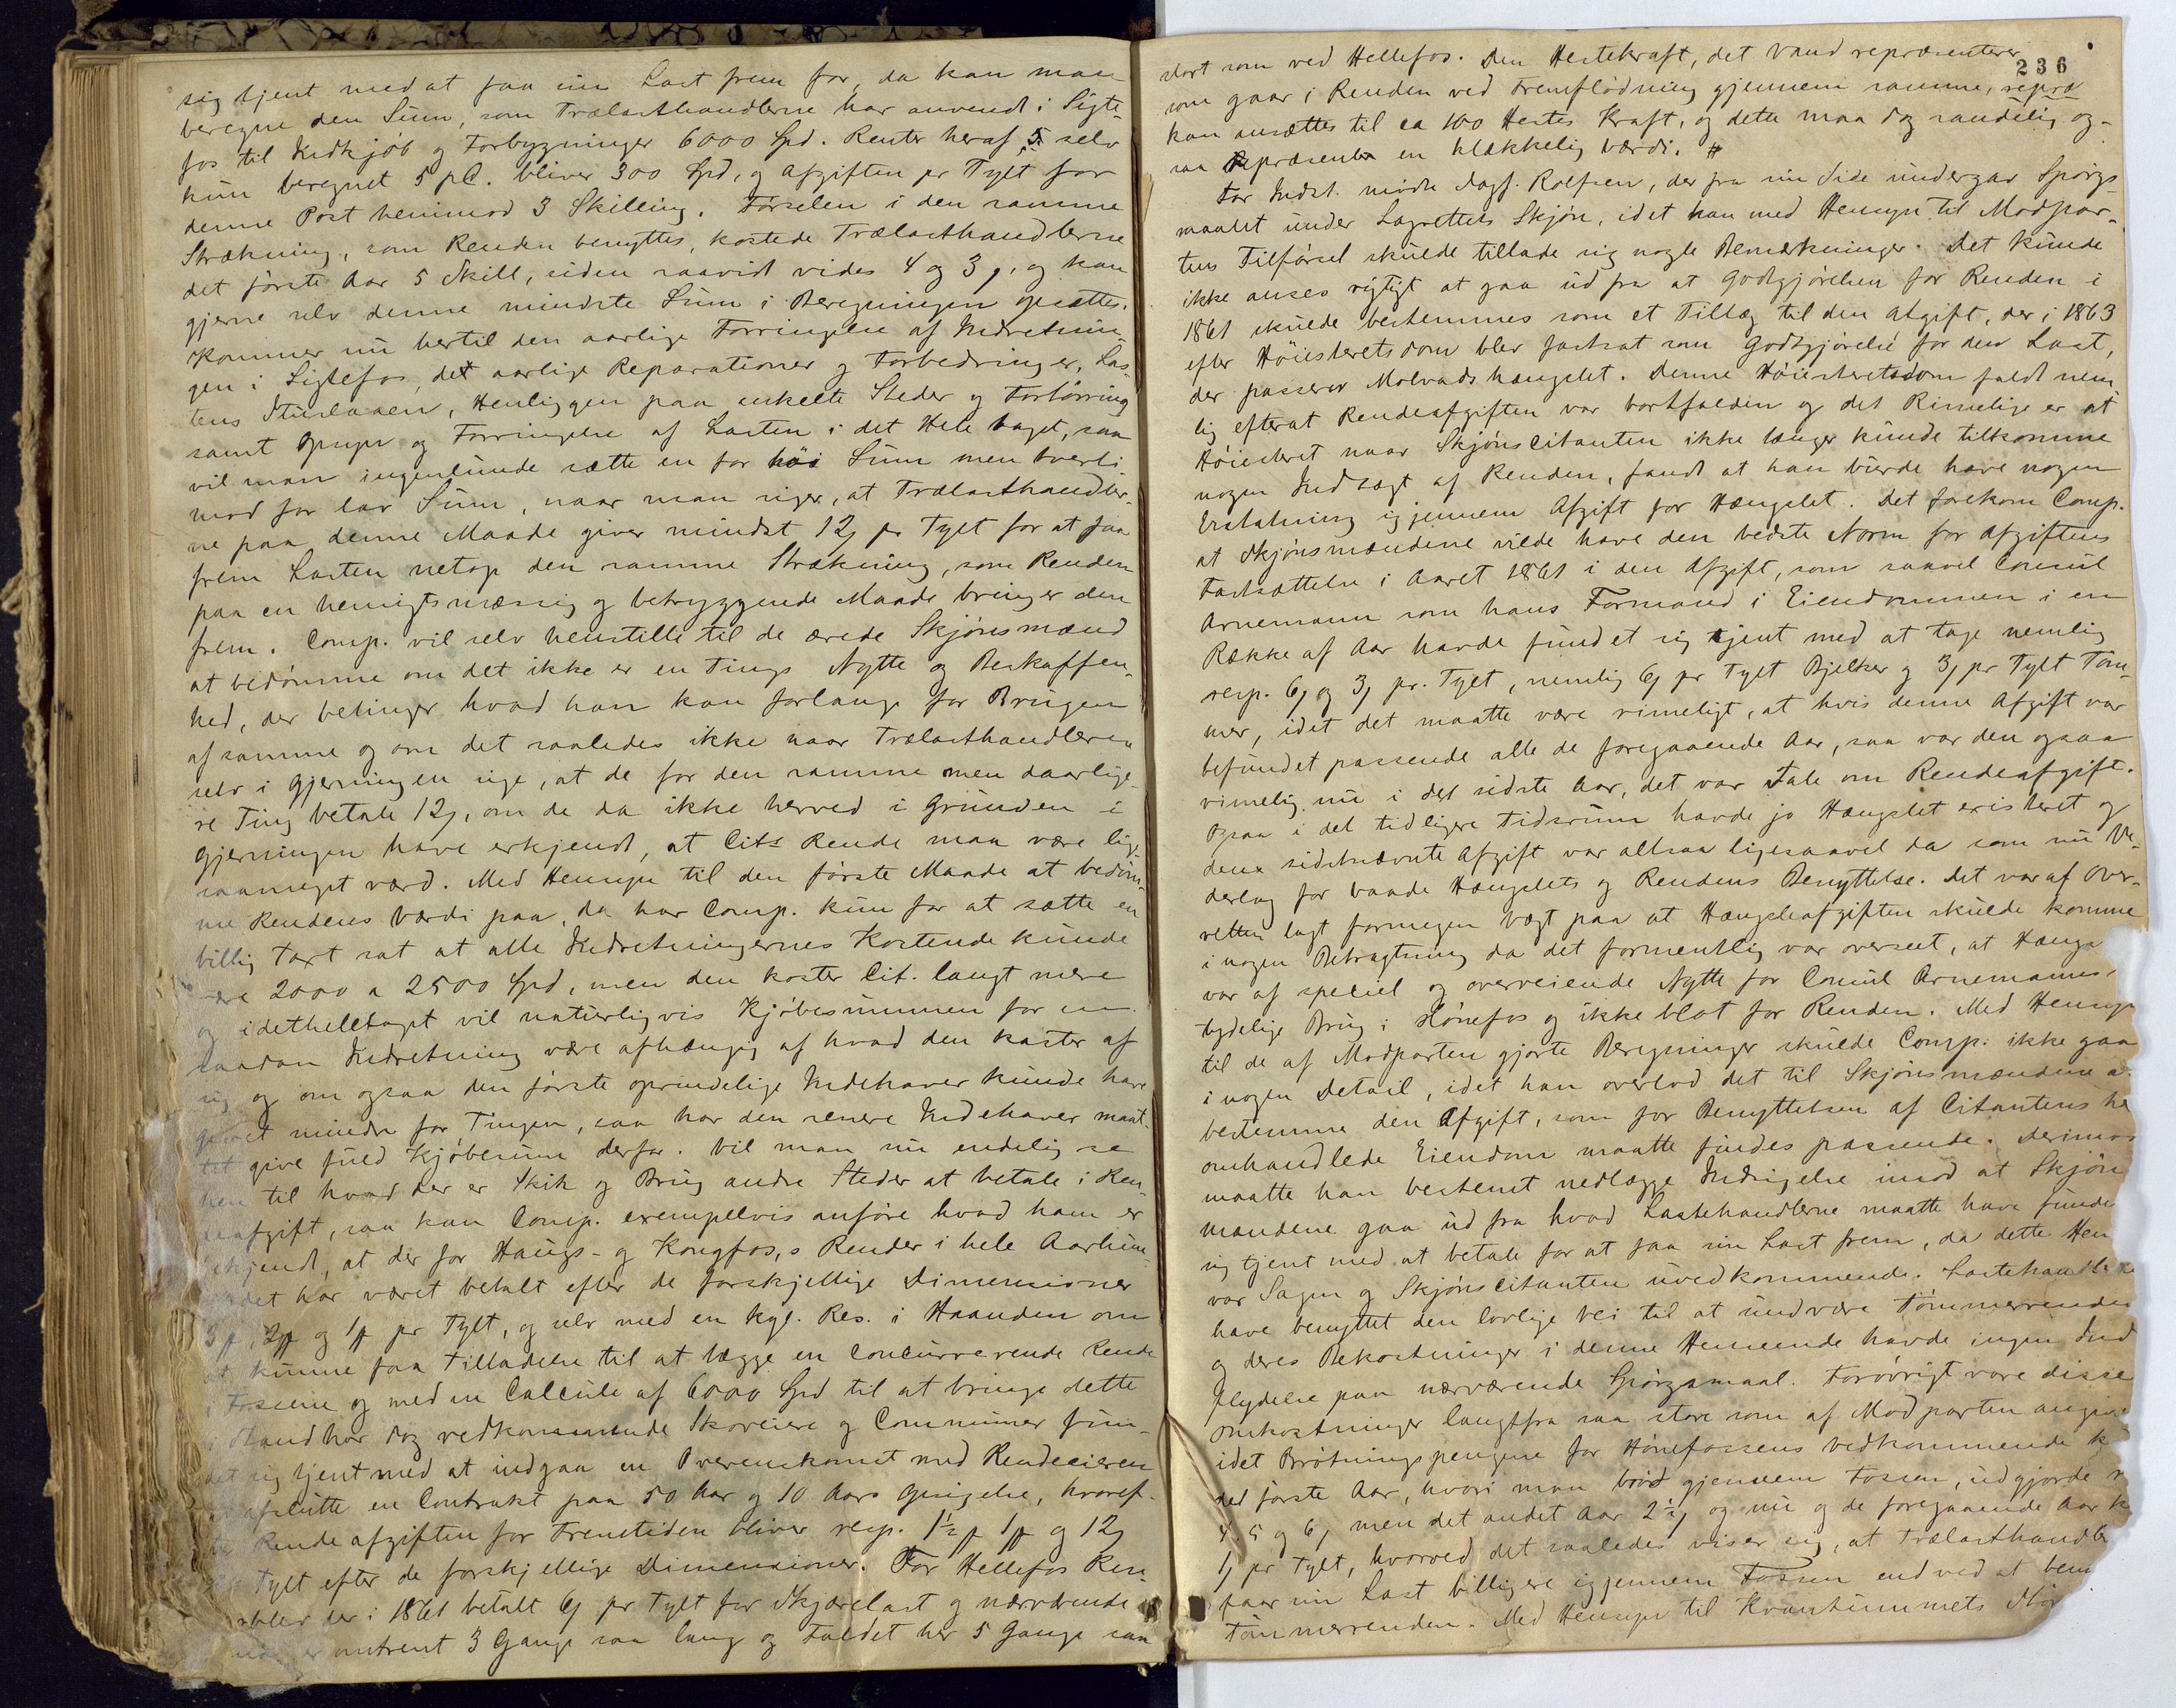 sig tjent med at faa sin Last frem for, da kan man
beregne den Sum, som Trælasthandlerne har anvendt i Sigte-
fos til Indkjøb og Forbygninger 6000 Spd. Renter heraf, selv
kun beregnet 5 pC. bliver 300 Spd, og Afgiften pr Tylt for
denne Post henimod 3 Skilling. Førselen i den samme
Strækning, som Renden benyttes, kostede Trælasthandlerne
det første Aar 5 Skill, siden saavidt vides 4 og 3 ꞵ, og kan
gjerne selv denne mindste Sum i Beregningen opsættes.
Kommer nu hertil den aarlige Forringelse af Indretnin-
gen i Sigtefos, det aarlige Reparationer og Forbedringer, Las-
tens Henliggen paa enkelte Steder og Fortørring
samt Opsyn og Forringelse af Lasten i det Hele taget, saa
vil man ingenlunde sætte en for høi Sum men tverti-
mod for lav Sum, naar man siger, at Trælasthandler-
ne paa denne Maade giver mindst 12 ꞵ pr Tylt for at faa
frem Lasten netop den samme Strækning, som Renden
paa en hensigtsmæssig og betryggende Maade bringer den
frem. Comp. vil selv henstille til de ærede Skjønsmænd
at bedømme om det ikke er en Tings Nytte og Beskaffen-
hed, der betinger hvad han kan forlange for Brugen
af samme og om det saaledes ikke naar Trælasthandleren
selv i Gjerningen sige, at de for den samme men daarlige-
re Ting betale 12 ꞵ, om de da ikke herved i Grunden i
Gjerningen have erkjendt, at Cits Rende maa være lige
saameget værd. Med Hensyn til den første Maade at bedøm-
me Rendens Værdi paa, da har Comp. kun for at sætte en
billig Taxt sat at alle Indretningernes Kostende kunde
være 2000 a 2500 Spd, men den koster Cit. langt mere
og idethele taget vil naturligvis Kjøbesummen for en
saadan Indretning være afhængig af hvad den kaster af
sig og om ogsaa den første oprindelige Indehaver kunde have
givet mindre for Tingen, saa har den senere Indehaver maat-
tet give fuld Kjøbesum derfor. Vil man nu endelig se
hen til hvad der er Skik og Brug andre Steder at betale i Ren-
deafgift, saa kan Comp. exempelvis anføre hvad ham er
bekjendt, at der for Haugs- og Kongfos,s Render i hele Aarhun-
dredet har været betalt efter de forskjellige Dimensioner
og pr Tylt, og selv med en kgl. Res. i Haanden om
at kunne faa Tilladelse til at lægge en concurrerende Rende
i Fossene og med en Calcule af 6000 Spd til at bringe dette
i Stand har dog vedkommende Skoveiere og Communer fun-
det sig tjent med at indgaa en Overenskomst med Rendeeieren
og afslutte en Contrakt paa 50 Aar og 10 Aars Opsigelse, hvoref-
ter Rendeafgiften for Fremtiden bliver resp. og 12 ꞵ
pr Tylt efter de forskjellige Dimensioner. For Hellefos Ren-
der i 1861 betalt 6 ꞵ pr Tylt for Skjærelast og nærværende
er omtrent 3 Gange saa lang og Faldet her 5 Gange saa
236
stort som ved Hellefos. Den Hestekraft, det Vand repræsenterer
som gaar i Renden ved Fremflødning gjennem samme,
kan ansættes til ca 100 Hestes Kraft, og dette maa dog sandelig og-
saa repræsentere en klækkelig Værdi.
For Indst. mødte Sagf. Rolfsen, der fra sin Side undergav Spørgs-
maalet under Lagrettets Skjøn, idet han med Hensyn til Modpar-
tens Tilførsel skulde tillade sig nogle Bemærkninger. Det kunde
ikke anses rigtigt at gaa ud fra at Godtgjørelsen for Renden i
1861 skulde bestemmes som et Tillæg til den Afgift, der i 1863
efter Høiesteretsdom blev fastsat som Godtgjørelse for den Last,
der passerer Molvadshængslet. Denne Høiesteretsdom faldt nem-
lig efterat Rendeafgiften var bortfalden og det Rimelige er at
Høiesteret naar Skjønscitanten ikke længer kunde tilkomme
nogen Indtægt af Renden, fandt at han burde have nogen
Erstatning igjennem Afgift for Hængslet. Det forekom Comp.
at Skjønsmændene vilde have den bedste Norm for Afgiftens
Fastsættelse i Aaret 1861 i den Afgift, som saavel Consul
Arnemann som hans Formænd i Eiendommen i en
Række af Aar havde fundet sig tjent med at tage nemlig
resp. 6 ꞵ og 3 ꞵ pr. Tylt, nemlig 6 ꞵ pr Tylt Bjelker og 3 ꞵ pr Tylt Tøm-
mer, idet det maatte være rimeligt, at hvis denne Afgift var
befundet passende alle de foregaaende Aar, saa var den ogsaa
rimelig nu i det sidste Aar, det var Tale om Rendeafgift.
Ogsaa i det tidligere Tidsrum havde jo Hængslet existeret og
den sidstnævnte Afgift var altsaa ligesaavel da som nu Ve-
derlag for baade Hængslets og Rendens Benyttelse. Det var af Over-
retten lagt formegen Vægt paa at Hængsleafgiften skulde komme
i nogen Betragtning da det formentlig var overseet, at
var af speciel og overveiende Nytte for Consul Arnemanns
tydelige Brug i Hønefos og ikke blot for Renden. Med Hensyn
til de af Modparten gjorte Beregninger skulde Comp. ikke gaa
i nogen Detail, idet han overlod det til Skjønsmændene
bestemme den Afgift, som for Benyttelsen af Citantens
omhandlede Eiendom maatte findes passende. Derimod
maatte han bestemt nedlægge Indsigelse imod at Skjøns
mændene gaa ud fra hvad Lastehandlerne maatte have funde
sig tjent med at betale for at faa sin Last frem, da dette
var Sagen og Skjønscitanten uvedkommende.
have benyttet den lovlige Vei til at undvære Tømmerrenden
og deres Bekostninger i denne Henseende havde ingen Ind
flydelse paa nærværende Spørgsmaal. Forøvrigt vare disse
Omkostninger langtfra saa store som af Modparten
idet Brøtningspengene for Hønefossens Vedkommende
det første Aar, hvori man brød gjennem Fossen, udgjorde
4, 5 og 6 ꞵ men det andet Aar 2½ ꞵ og nu og de foregaaende Aar
1 ꞵ pr Tylt, hvorved det saaledes viser sig, at
faar sin Last billigere igjennem Fossen end ved at
Tømmerrenden. Med Hensyn til Kvantummets